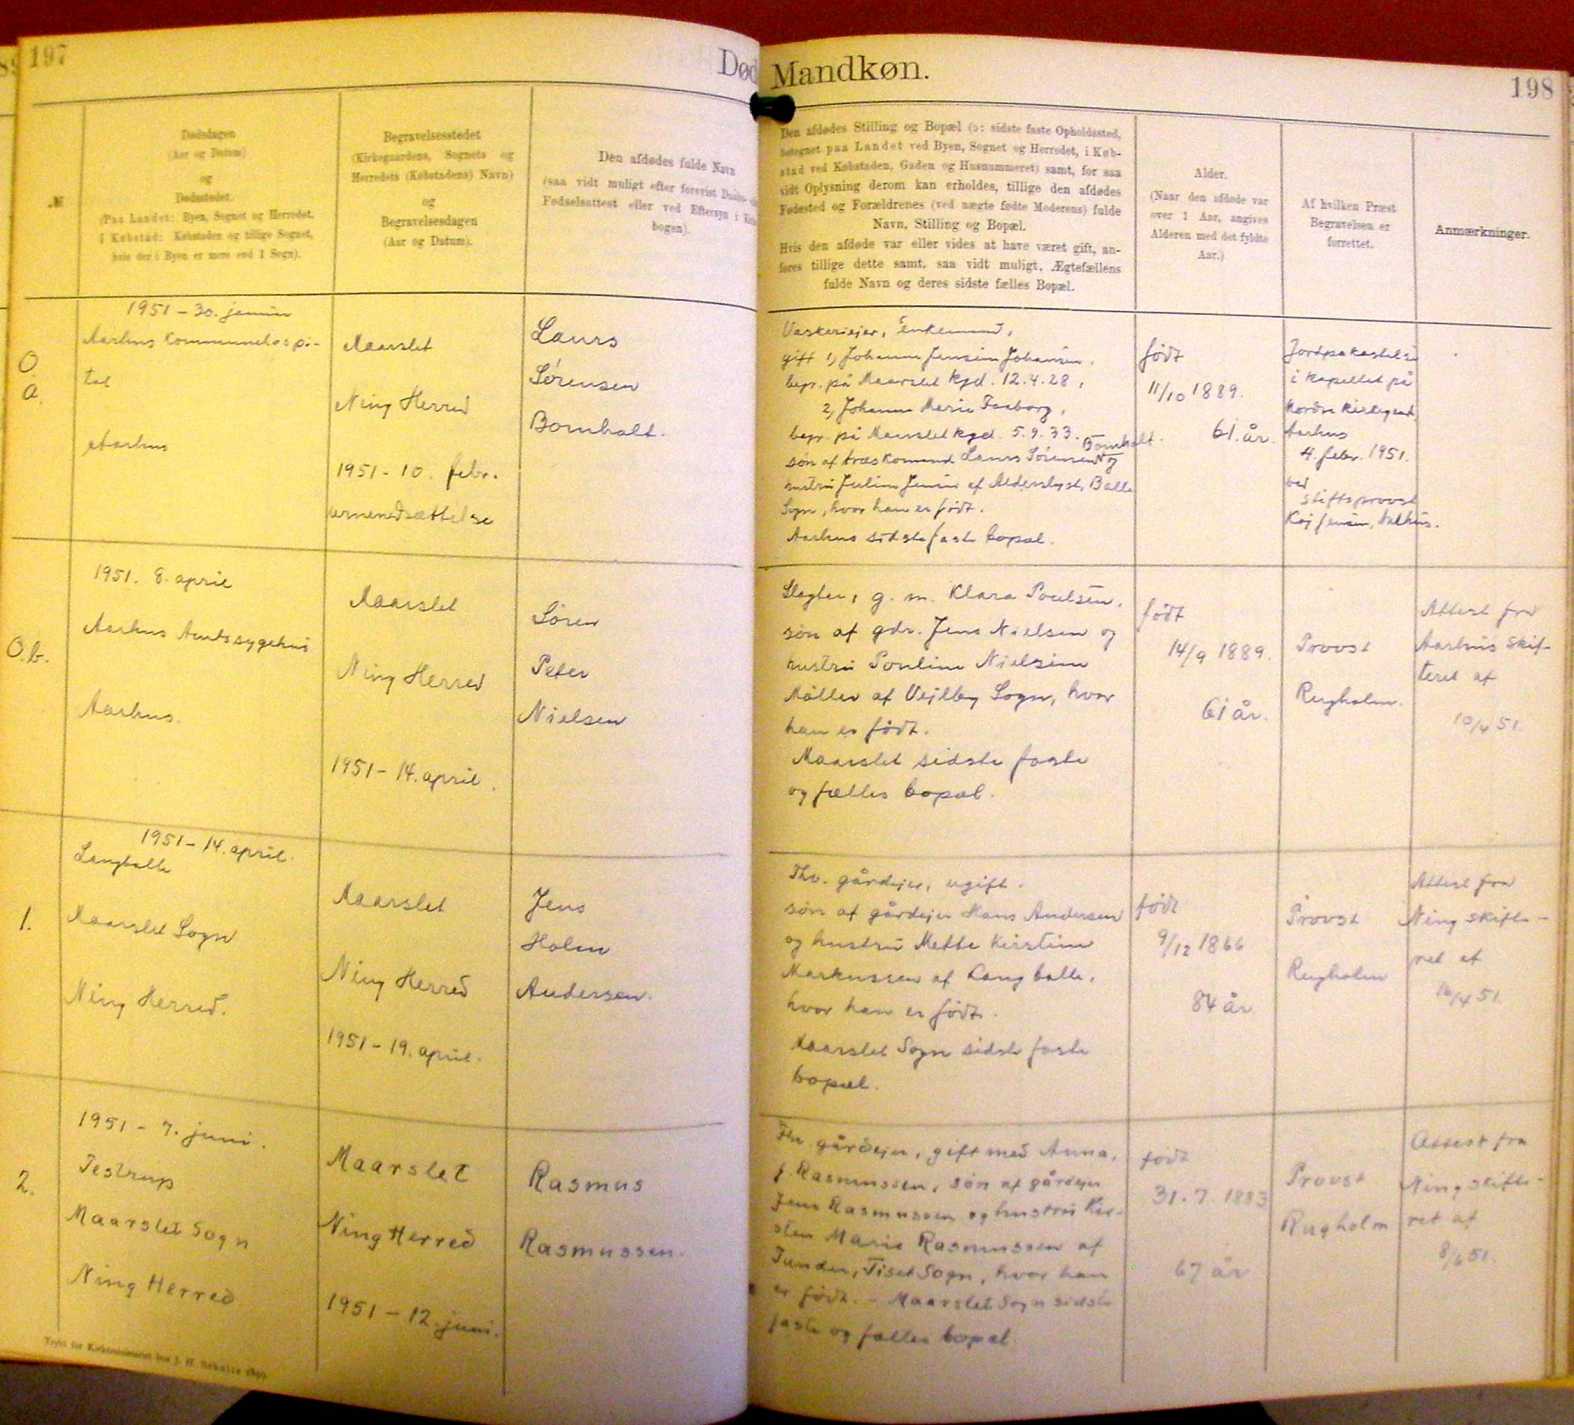 197
Død
Mandkøn.
198
№
Dødsdagen
(Aar og Datum)
og
Dødsstedet.
(Paa Landet: Byen, Sognet og Herredet,
i Købstad: Købstaden og tillige Sognet,
hvis der i Byen er mere end 1 Sogn).
Begravelsesstedet
(Kirkegaardens, Sognets og
Herredets (Købstadens) Navn)
og
Begravelsesdagen
(Aar og Datum).
Den afdødes fulde Navn
(saa vidt muligt efter forevist
Fødselsattest eller ved Eftersyn i
bogen).
Den afdødes Stilling og Bopæl (ɔ: sidste faste Opholdssted,
betegnet paa Landet ved Byen, Sognet og Herredet, i Køb-
stad ved Købstaden, Gaden og Husnummeret) samt, for saa
vidt Oplysning derom kan erholdes, tillige den afdødes
Fødested og Forældrenes (ved uægte fødte Moderens) fulde
Navn, Stilling og Bopæl.
Hvis den afdøde var eller vides at have været gift, an-
føres tillige dette samt, saa vidt muligt, Ægtefællens
fulde Navn og deres sidste fælles Bopæl.
Alder.
(Naar den afdøde var
over 1 Aar, angives
Alderen med det fyldte
Aar.)
Af hvilken Præst
Begravelsen er
forrettet.
Anmærkninger.
O.
a.
1951 - 30. januar
Aarhus Kommunehospi-
tal
Aarhus
Maarslet
Ning Herred
1951 - 10. febr.
urnenedsættelse
Laurs
Sörensen
Bomholt.
Vaskeriejer, enkemand,
gift 1) Johanne Jensine Johansen,
begr. på Maarslet kgd. 12.4.28,
2) Johanne Marie Faaborg,
begr. på Maarslet kgd. 5.9.33.
søn af Laurs Sörensen Bomholt og
hustru Juline Jensen af Balle
Sogn, hvor han er født.
Aarhus sidste faste bopæl.
født
11/10 1889.
61. år.
Jordpåkastelse
i kapellet på
Nordre Kirkegård,
Aarhus
4. febr. 1951.
ved
stiftsprovst
Kaj Jensen, Aarhus.
O.b.
1951. 8. april
Aarhus Amtssygehus
Aarhus.
Maarslet
Ning Herred
1951 - 14. april.
Søren
Peter
Nielsen
Slagter, g. m. Klara Poulsen,
søn af gdr. Jens Nielsen og
hustru Pouline Nielsine
Møller af Vejlby Sogn, hvor
han er født.
Maarslet sidste faste
og fælles bopæl.
født
14/9 1889.
61 år.
Provst
Rugholm.
Attest fra
Aarhus Skif-
teret af
10/4 51.
1.
1951 - 14. april.
Langballe
Maarslet Sogn
Ning Herred.
Maarslet
Ning Herred
1951 - 19. april.
Jens
Holm
Andersen.
Fhv. gårdejer, ugift.
søn af gårdejer Hans Andersen
og hustru Mette Kirstine
Markussen af Langballe,
hvor han er født.
Maarslet Sogn sidste faste
bopæl.
født
9/12 1866
84 år
Provst
Rugholm
Attest fra
Ning skifte-
ret af
16/4 51.
2.
1951 - 7. juni.
Testrup
Maarslet Sogn
Ning Herred
Maarslet
Ning Herred
1951 - 12. juni.
Rasmus
Rasmussen.
Fhv. gårdejer, gift med Anna,
f. Rasmussen, søn af gårdejer
Jens Rasmussen og hustru Kir-
sten Marie Rasmussen af
Tunder, Tiset Sogn, hvor han
er født. - Maarslet Sogn sidste
faste og fælles bopæl
født
31.7.1883
67 år
Provst
Rugholm
Attest fra
Ning skifte-
ret af
8/6 51.